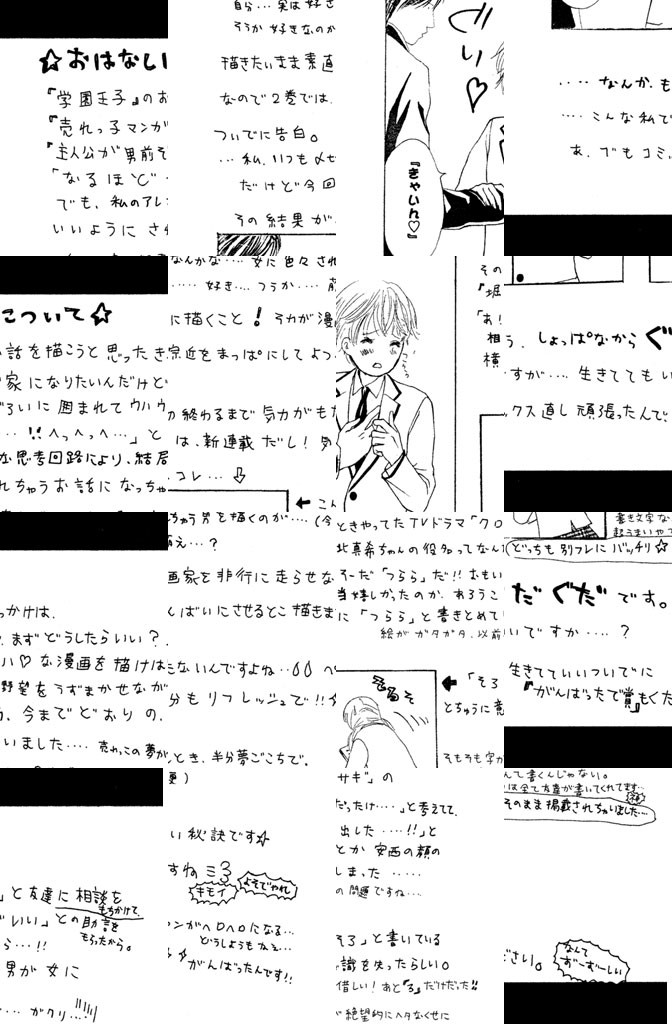 ☆おはなしい
『学園王子』のお
『売れっ子マンガ
『主人公が男前そ
「なるほど・
でも、私のアレ
いいように さ
自分… 実は好き
そうか 好きなのか
描きたいまま素直
なので2巻では、
ついでに告白。
…私、いつも〆せ
だけど今回
その結果が
ぐい♡
『きゃいん♡』
‥‥なんか、も
‥‥こんな私で
あ、でもコミ
について☆
話を描こうと思ったき
家になりたいんだけど
ろいに囲まれてウハウ
‥!!へっへっへ…」と
な思考回路により、結局
れちゃうお話になっちゃ
なんかな‥‥女に色々され
‥‥好き… つうか‥‥
に描くこと！それが漫
原近をまっぱにしてよっ
の終わるまで気力がもた
は、新連載だし！気
コレ…⇩
← こん
その
『堀
「あ！
相
横
う、しょっぱなからぐ
すが‥‥生きてても い
ックス直し頑張ったんで、
っかけは、
、まずどうしたらいい？
ハ♡な漫画を描けは
野望をうずまかせなが
、今までどおり の、
いました‥‥売れっこの夢が
ちゃう男を描くのが‥‥(今
萌え…？
画家を非行に走らせな
んぱいにさせるとこ描きま
こないんですよね‥
分もリフレッシュで!!
とき、半分夢ごこちで。
ときやってたTVドラマ「クロ
北真希ちゃんの役名ってなん
そーだ「つらら」だ!!おもい
当嬉しかったのか、あろうこ
に「つらら」と書きとめて
絵がガタガタ、以前
そるそ
←「そろ
とちゅうに意
そもそも字が
書き文字な
超うまいやつ
(どっちも別フレにバッチリ☆
だぐだです。
いですか‥‥？
生きてていいついでに
『がんばったで賞』もくだ
」と友達に相談を
もちかけて、
でいい」との助言を
もらったから。
ら…!!
男が女に
‥‥ガクリ…!!!
更)
い秘訣です☆
すね ミ3
キモイ
よそでやれ
ンがヘロヘロになる…
どうしようもねぇ…
がんばったんです!!
サギ」の
だったけ‥‥」と考えてて、
出した‥‥!!」と
とか安西の顔の
しまった‥‥‥
の問題ですね…
そろ」と書いている
識を失ったらしい。
惜しい！あと「ろ」だけだった!!
絶望的にヘタなくせに
んて書くんじゃない。
は全て友達が書いてくれてます…
そのまま掲載されちゃいました…
ださい。
なんて
ずーずーしい